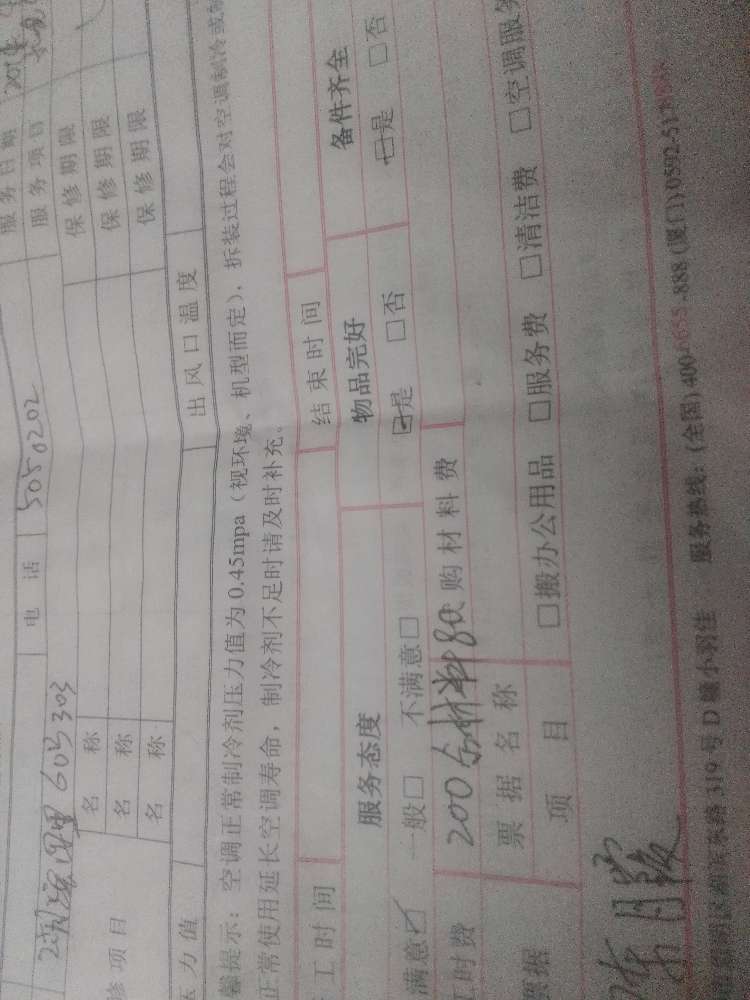 服务日期
服务项目
电话 5050202
保修期限
605303 名称 保修期限
名称 保修期限
修项目 名称
压力值 出风口温度
馨提示：空调正常制冷剂压力值为0.45mpa（视环境、机型而定），拆装过程会对空调制冷或制
正常使用延长空调寿命，制冷剂不足时请及时补充。
工时间 结束时间
服务态度 物品完好 备件齐全
满意☑ 一般□ 不满意□ ☑是 □否 ☑是 □否
工时费 200 含材料80 购材料费
票据 票据名称
项目 □搬办公用品 □服务费 □清洁费 □空调服务
319号D 服务热线：(全国)400 888 (厦门)0592-51